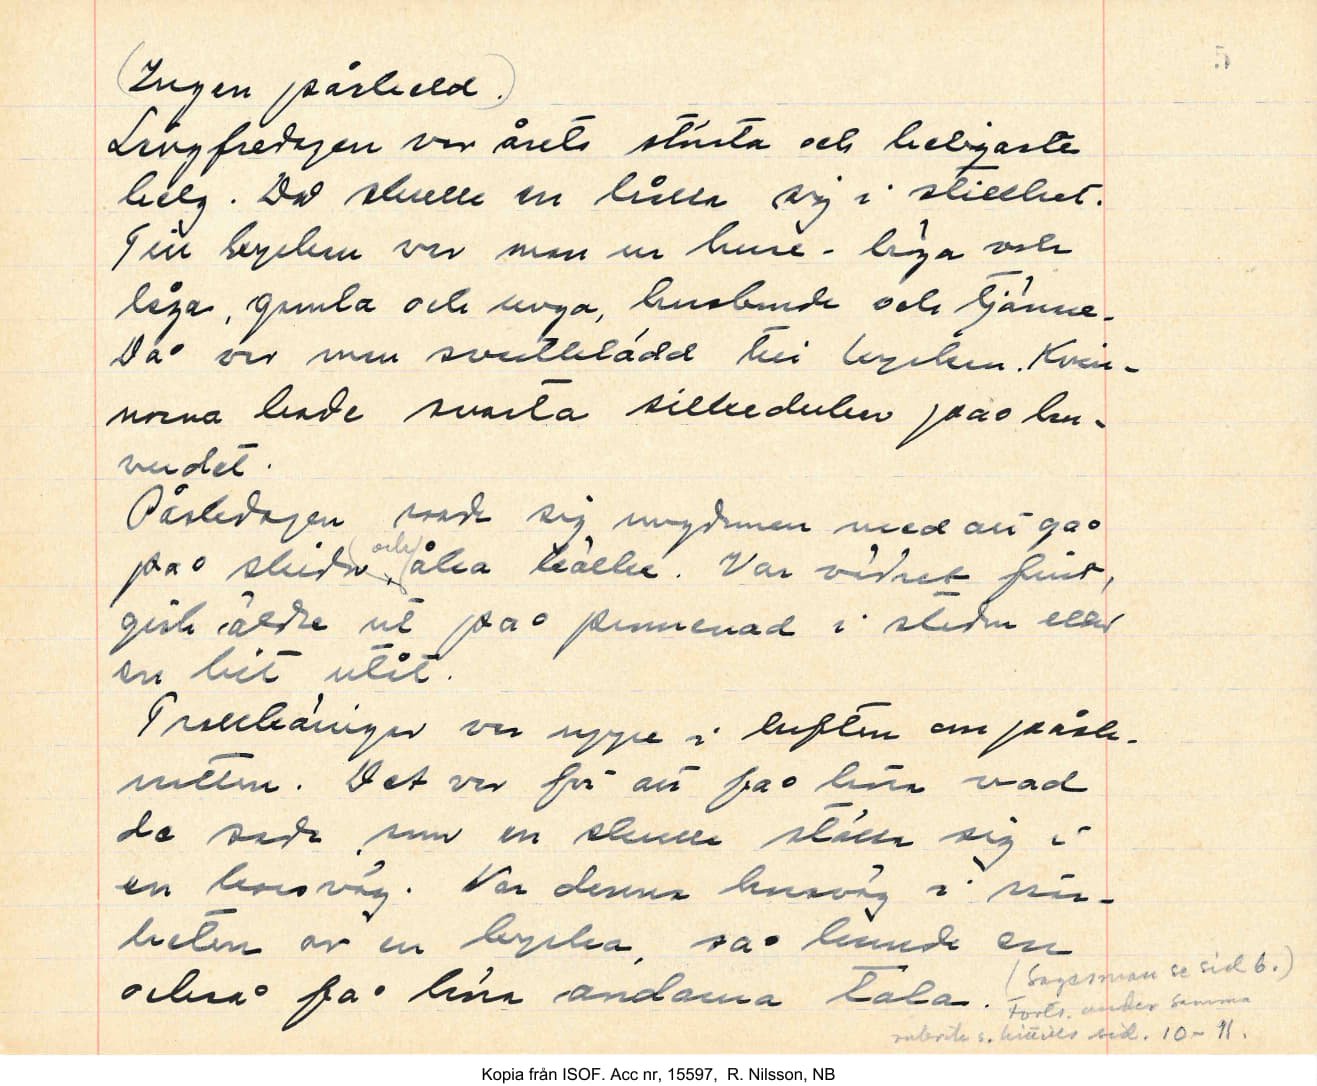 5
(Ingen påskeld.)
Långfredagen var årets största och heligaste
helg. Då skulle en hålla sig i stillhet.
Till kyrkan var man en hure - höga och
låga, gamla och unga, husbonde och tjänare.
Då var man svartklädd till kyrkan. Kvin-
norna hade svarta silkedukar på hu-
vudet.
Påskdagen roade sig ungdomen med att gå
på skidor, (och) åka kälke. Var vädret fint,
gick äldre ut på promenad i staden eller
en bit utåt.
Trollkäringar var uppe i luften om påsk-
natten. Det var för att få höra vad
de sade, som en skulle ställa sig i
en korsväg. Var denna korsväg i när-
heten av en kyrka, så kunde en
också få höra andarna tala.
(Sagesman se sid 6.)
Forts. under samma
rubrik s. hittills sid. 10-11.
Kopia från ISOF. Acc nr, 15597, R. Nilsson, NB